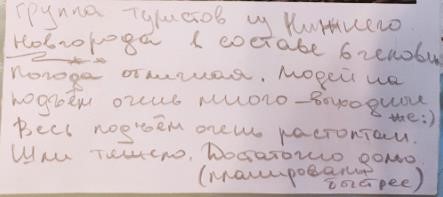 группа туристов из Нижнего
Новгорода в составе 6 человек
Погода отличная. Людей на
подъём очень много – выходные
же:)
Весь подъём очень растоптан.
Шли тяжело. Достаточно долго
(планировали
быстрее)